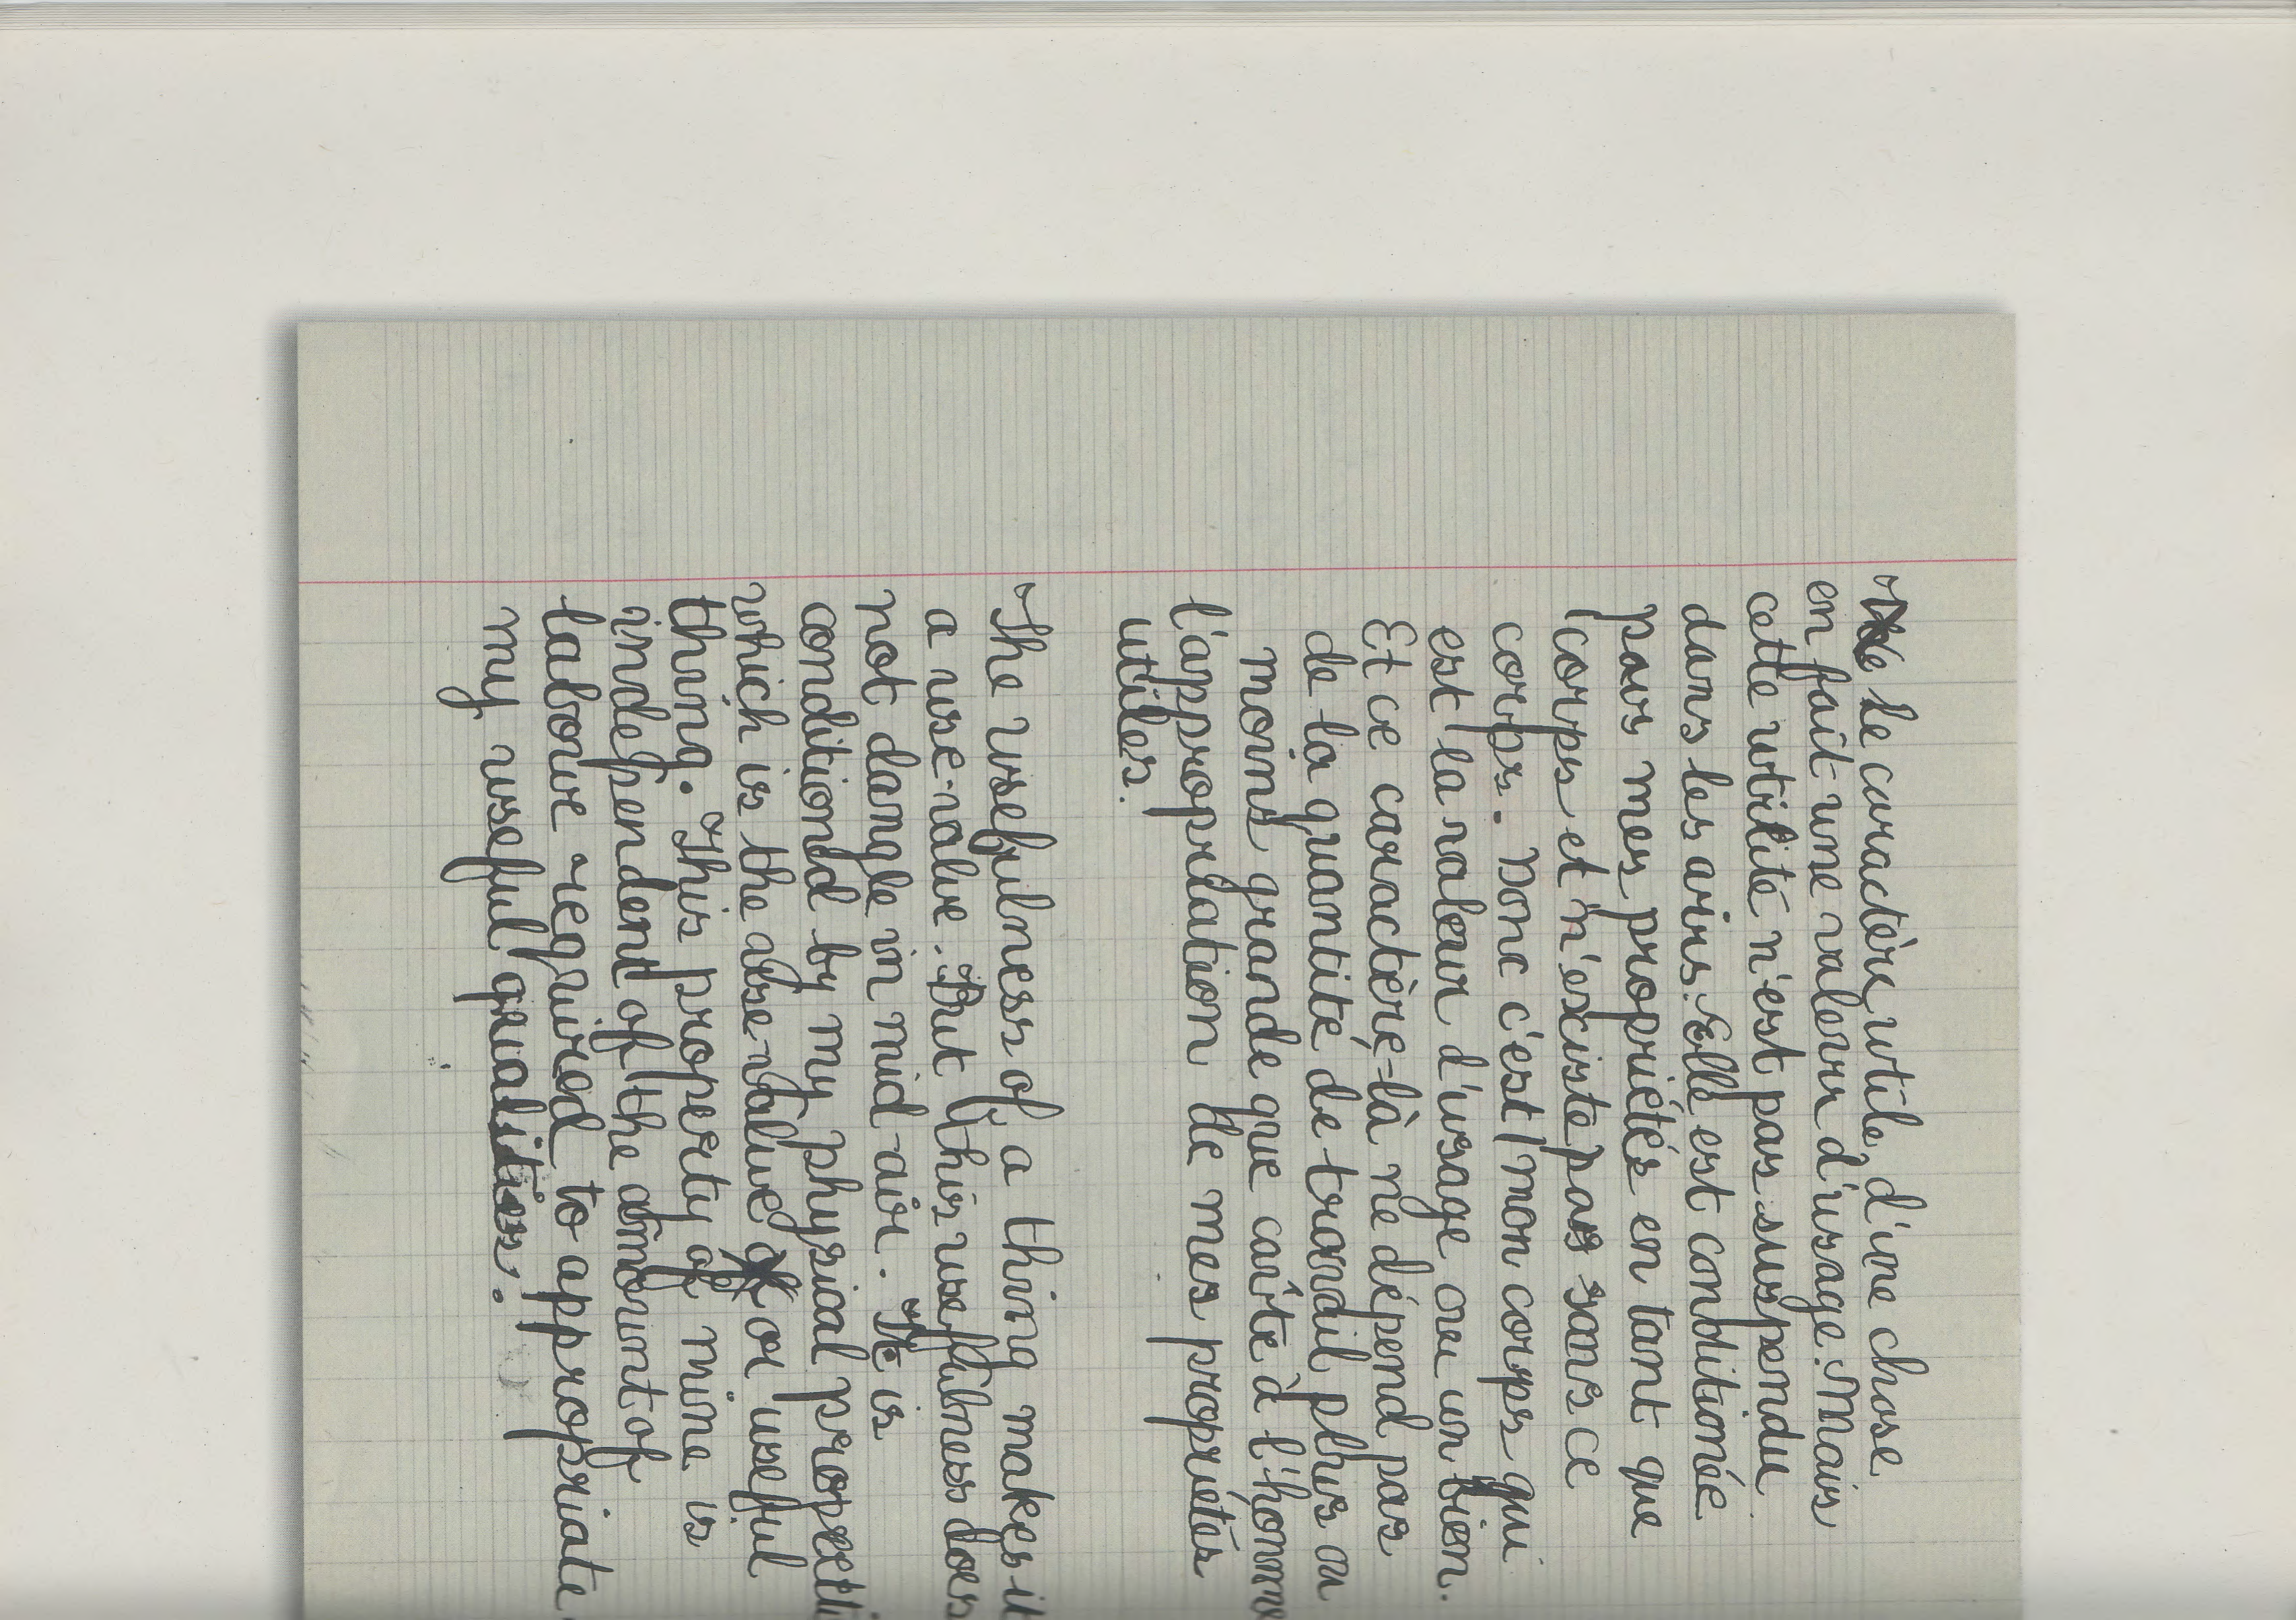 le caractère utile d'une chose
en fait une valeur d'usage. Mais
cette utilité n'est pas suspendu
dans les airs. Elle est conditionée
pars mes propriétés en tant que
corps et n'existe pas sans ce
corps. Donc c'est mon corps qui
est la valeur d'usage ou un bien.
Et ce caractère-là ne dépend pas
de la quantité de travail plus ou
moins grande que coûte à l'homme
l'appropriation de mes propriétés
utiles.
The usefulness of a thing makes it
a use-value. But this usefulness does
not dangle in mid-air. It is
conditiond by my physical
which is the use-value or useful
thing. This property of mine is
independent of the amount of
labour required to appropriate
my useful qualities.